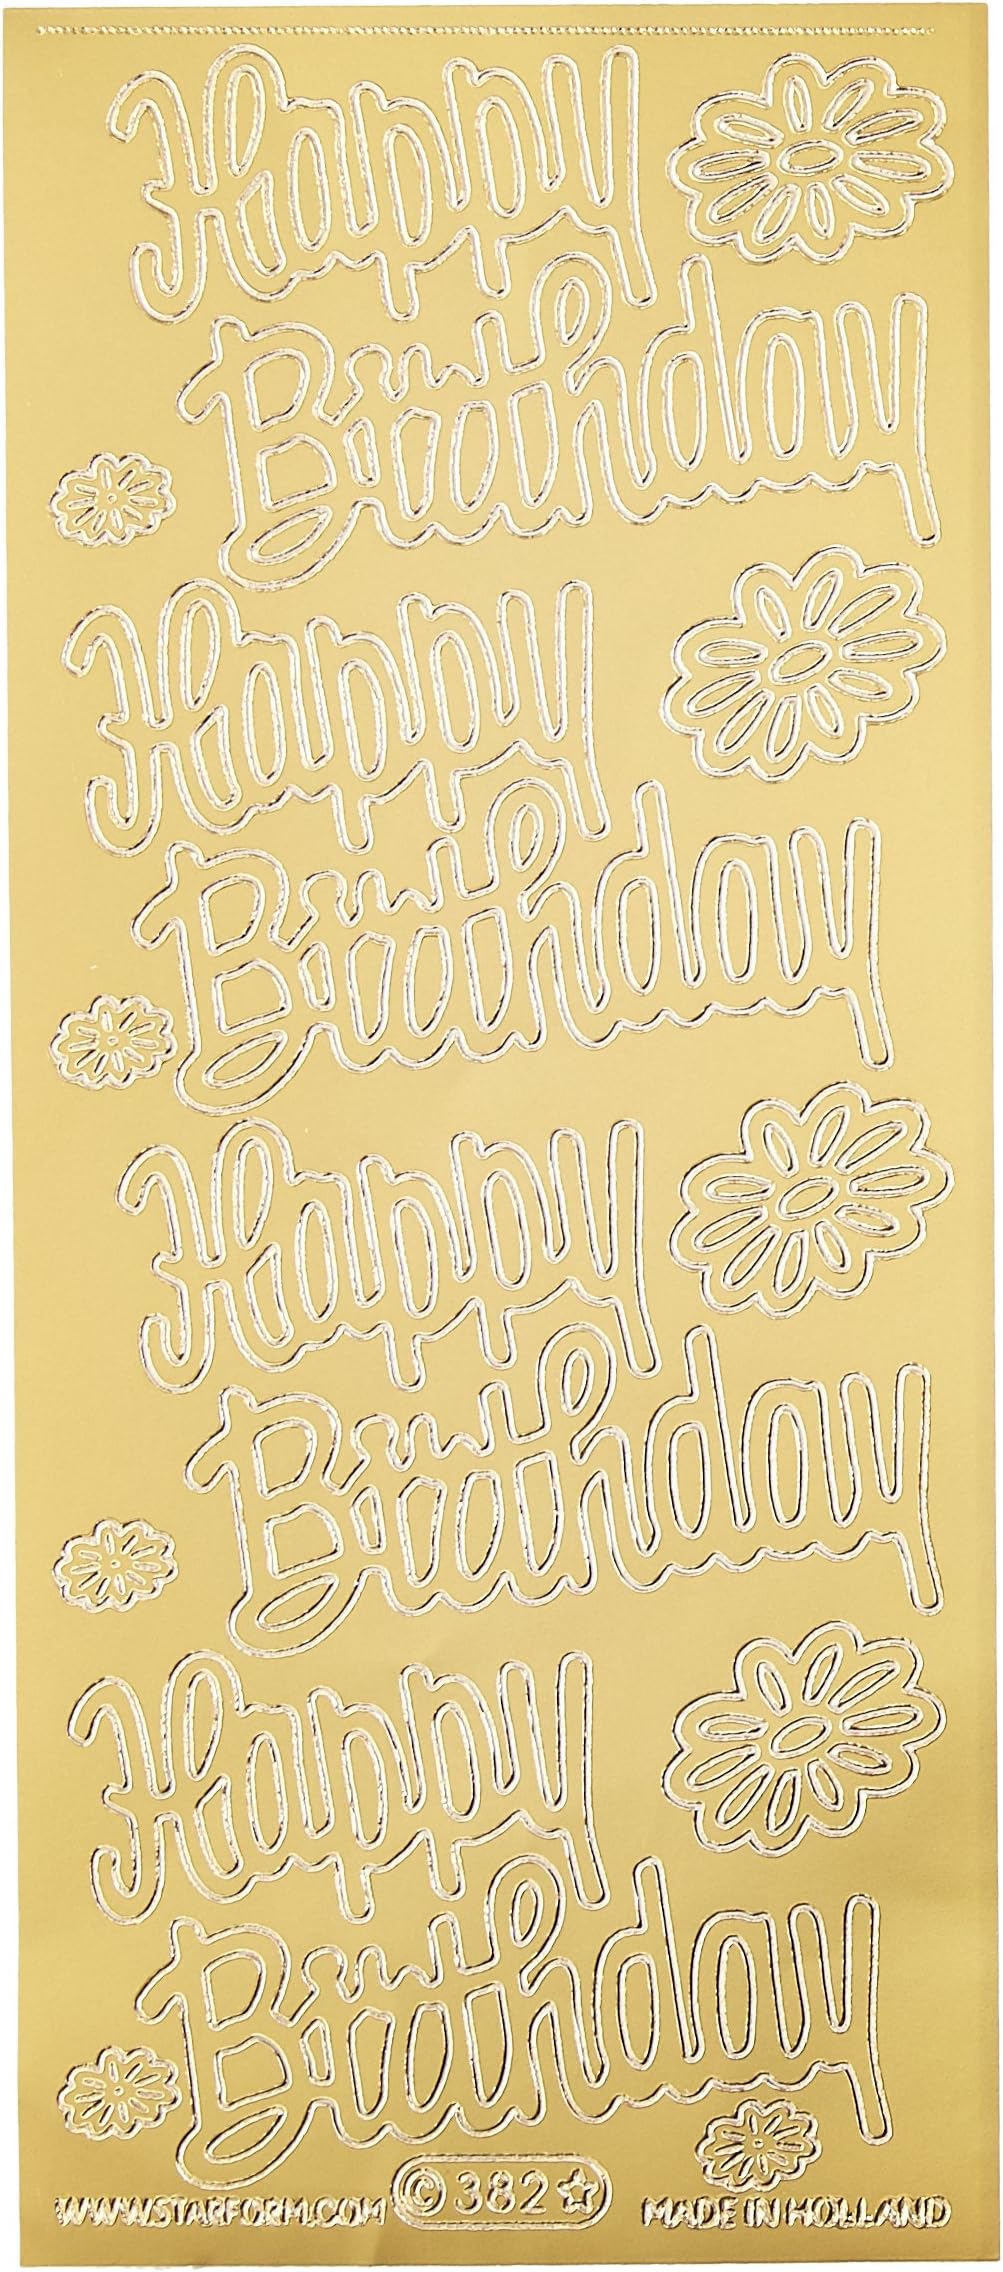 Happy
Birthday
Happy
Birthday
Happy
Birthday
Happy
Birthday
WWW.STARFORM.COM © 382 ☆ MADE IN HOLLAND